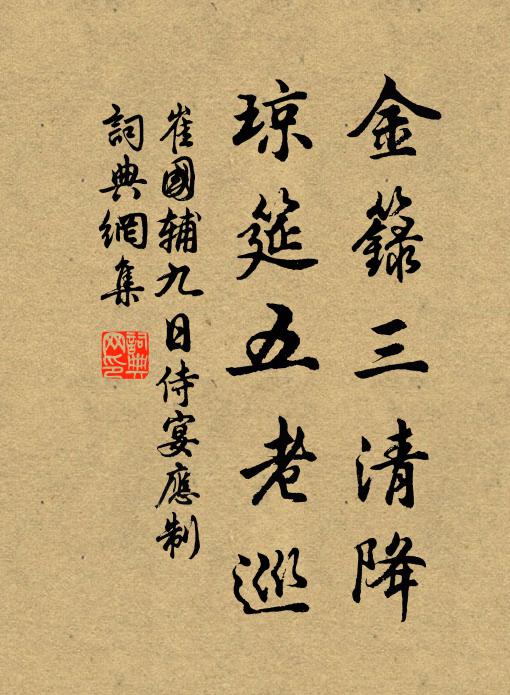 金籙三清降
琼筵五老巡
崔國輔九日侍宴應制
詞典網集
詞典网印